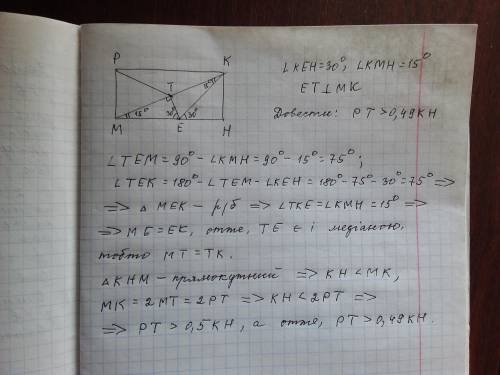 P K
∠KEH=30°; ∠KMH=15°
T
ET⊥MK
15° 30° 30°
Довести: PT>0,49KH
M E H
∠TEM=90°-∠KMH=90°-15°=75°;
∠TEK=180°-∠TEM-∠KEH=180°-75°-30°=75°=>
=> △MEK - р/б => ∠TKE=∠KMH=15° =>
=> ME=EK, отже, TE є і медіаною,
тобто MT=TK.
△KHM-прямокутний => KH<MK,
MK=2MT=2PT => KH<2PT =>
=> PT>0,5KH, а отже, PT>0,49KH.